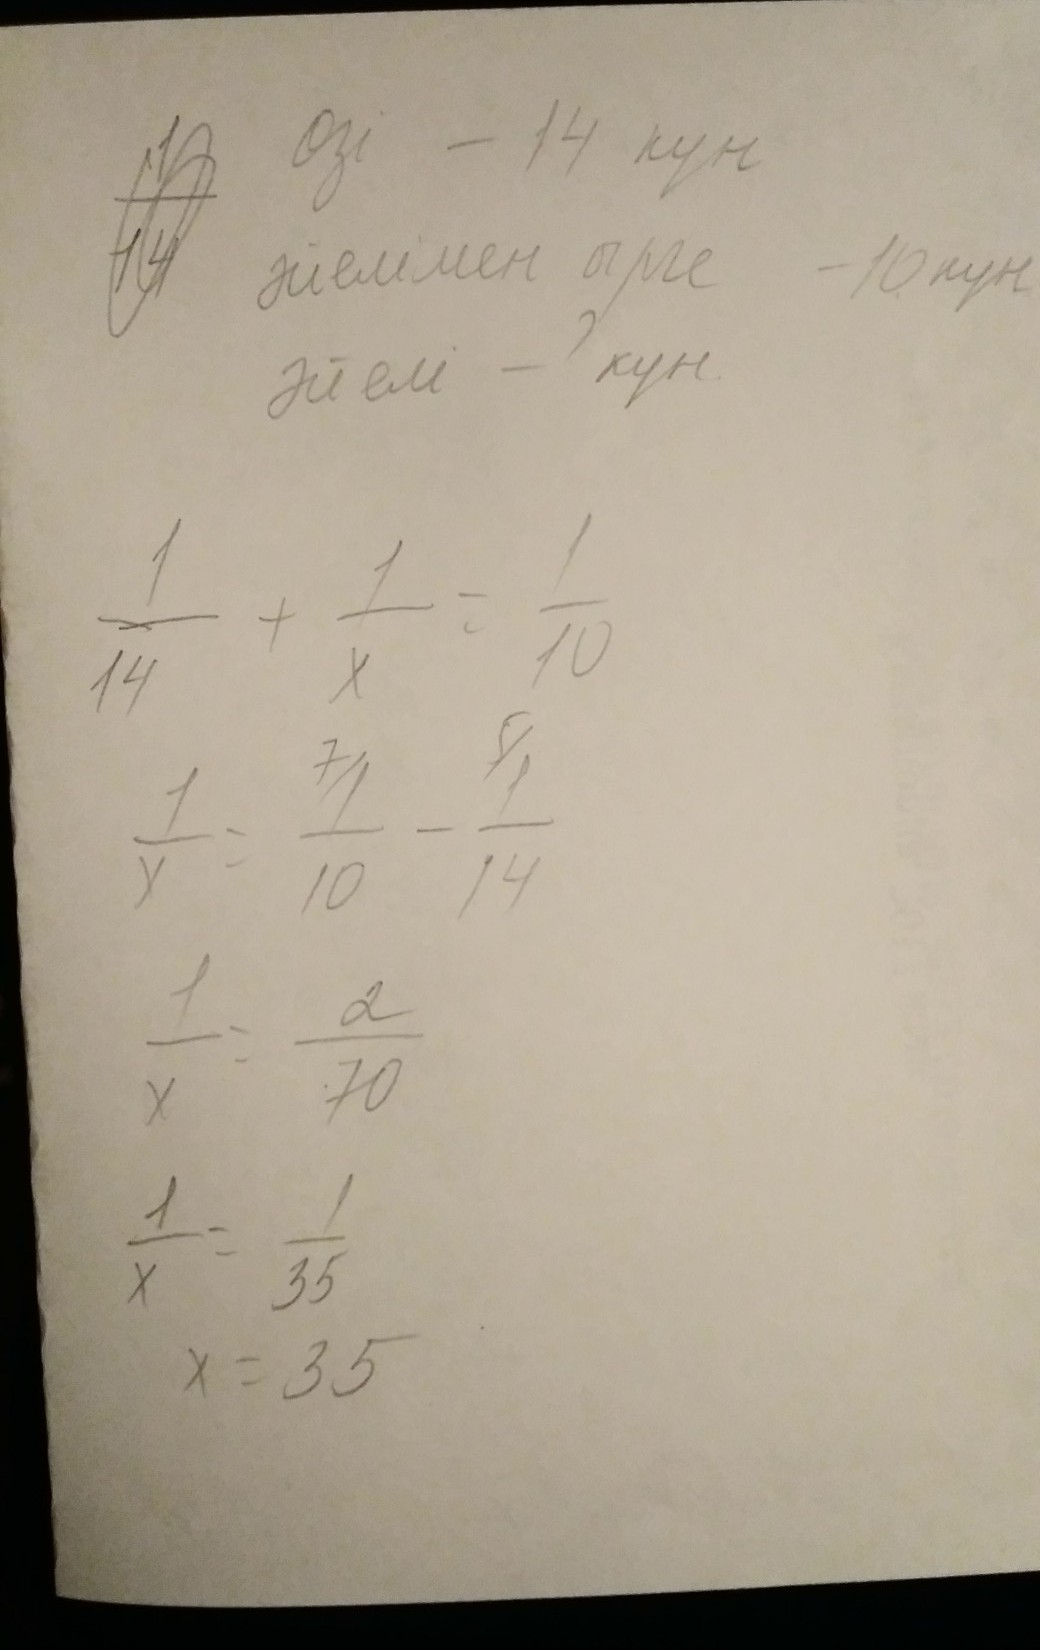 Өзі - 14 күн
әйелімен бірге - 10 күн
әйелі - ? күн
1/14 + 1/x = 1/10
1/x = 7/ 1/10 - 5/ 1/14
1/x = 2/70
1/x = 1/35
x = 35